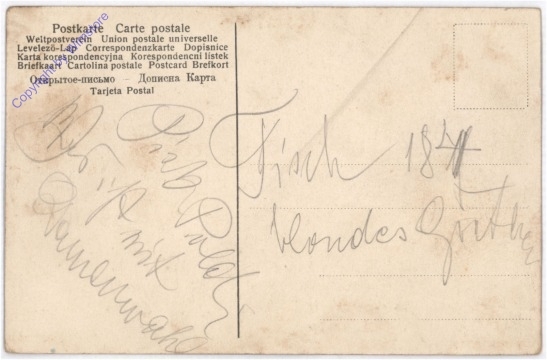 Postkarte Carte postale
Weltpostverein Union postale universelle
Levelező-Lap Correspondenzkarte Dopisnice
Karta korespondencyjna Korespondencni listek
Briefkaart Cartolina postale Postcard Brefkort
Открытое-письмо — Дописна Карта
Tarjeta Postal
Tisch 184
blondes
Poldi
für
mit
Damenwahl